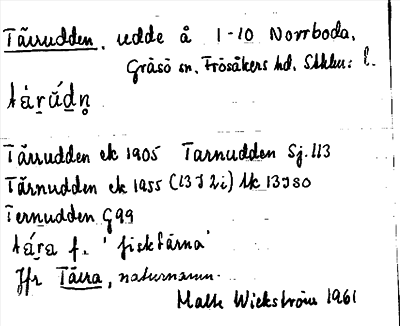 Tärrudden, udde å 1-10 Norrboda,
Gräsö sn, Frösåkers hd, Sthlms l.
tá̀ṟŭ́ḏn̥
Tärrudden ek 1905 Tarnudden Sj. 113
Tärnudden ek 1955 (13J 2i) tk 13J80
Ternudden G99
tá̀ṟa f. 'fisktärna'
Jfr Tärra, naturnamn.
Mats Wickström 1961